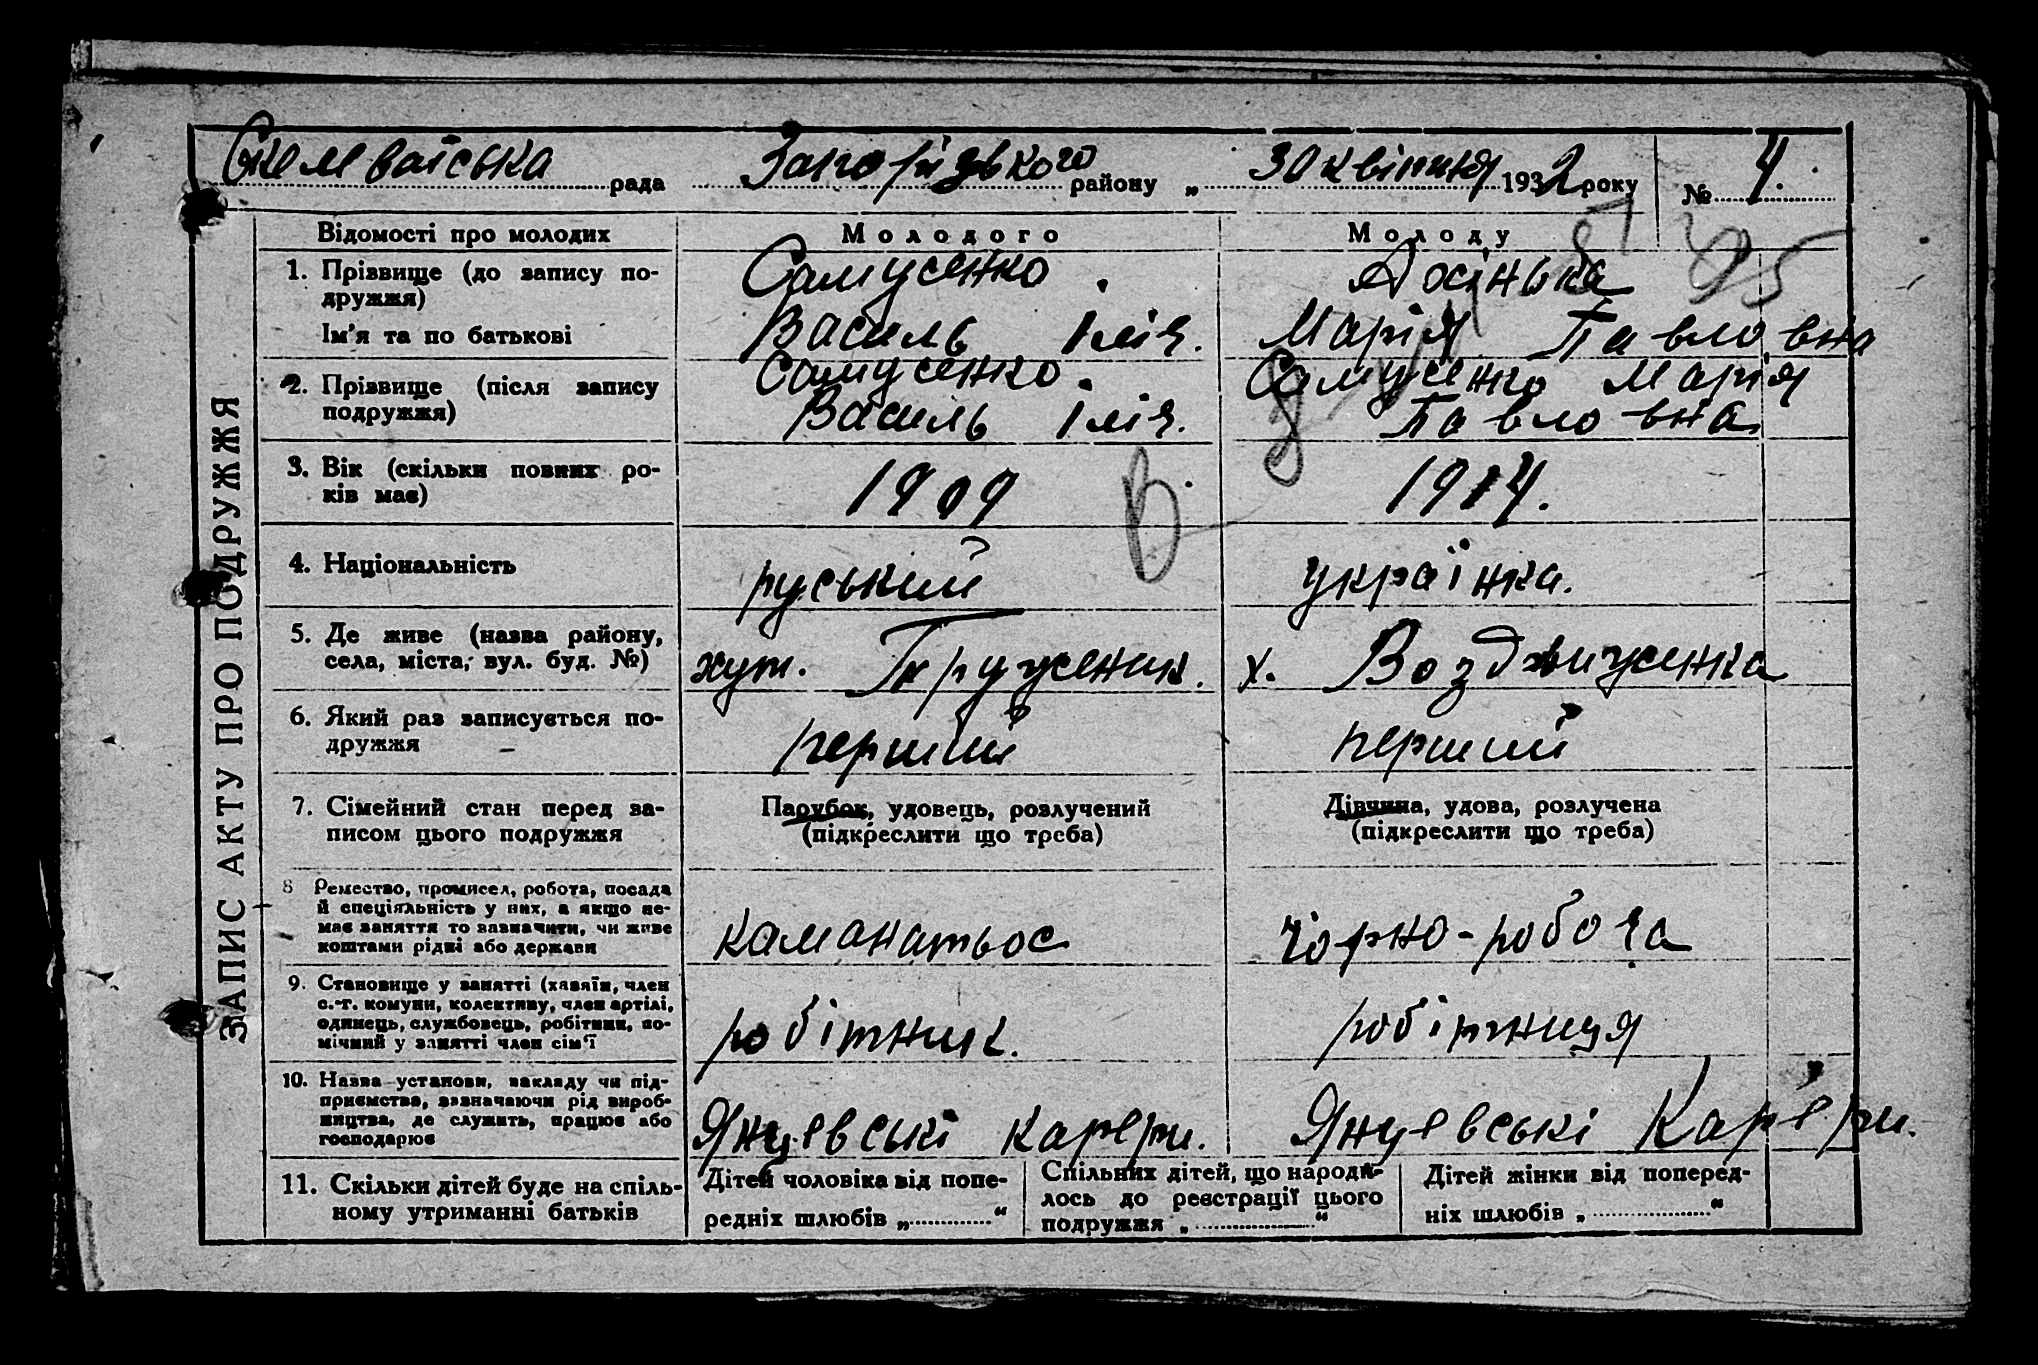 рада Запорізького району „ 30 квітня 1932 року № 4.
ЗАПИС АКТУ ПРО ПОДРУЖЖЯ
Відомості про молодих
Молодого
Молоду
1. Прізвище (до запису по-
дружжя)
Ім'я та по батькові
Самусенко.
Василь Ілiч.
Марія Павловна
2. Прізвище (після запису
подружжя)
Самусенко.
Василь Ілiч.
Самусенко Марія
Павловна
3. Вік (скільки повних ро-
ків має)
1909
1914.
В.
4. Національність
руський
українка.
5. Де живе (назва району,
села, міста, вул. буд. №)
хут. Труженик.
х. Воздвиженка
6. Який раз записується по-
дружжя
перший
перший
7. Сімейний стан перед за-
писом цього подружжя
Парубок, удовець, розлучений
(підкреслити що треба)
Дівчина, удова, розлучена
(підкреслити що треба)
8 Ремество, промисел, робота, посада
й спеціяльність у них, а якщо не-
має заняття то зазначити, чи живе
коштами рідні або держави
каманатьос
чорно-робоча
9. Становище у занятті (хазяїн, член
с.-г. комуни, колективу, член артілі,
одинець, службовець, робітник, по-
мічний у занятті член сім'ї
робітник.
робітниця
10. Назва установи, закладу чи під-
приємства, зазначаючи рід вироб-
ництва, де служить, працює або
господарює
Янцевські карєри.
Янцевські Кар'єри.
11. Скільки дітей буде на спіль-
ному утриманні батьків
Дітей чоловіка від попе-
редніх шлюбів „ “
Спільних дітей, що народи-
лось до реєстрації цього
подружжя „ “
Дітей жінки від поперед-
ніх шлюбів „ “